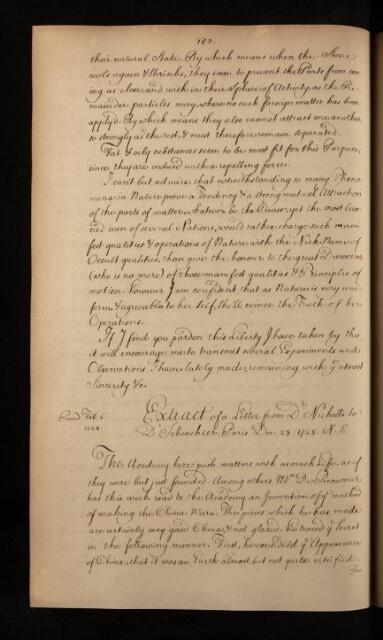 182.
their natural State. By which means when the Stone
cools again & Shrinks, they seem to prevent the Parts from com
ing as close, and within their Sphere of Activity, as the Re-
mainder particles may, where no such foreign matter has been
apply'd. By which means they also cannot attract one another
so strongly as the rest, & must therefore remain separated.
Fat & oily substances seem to be most fit for this Purpose,
since they are indued with a repelling force.
I can't but admire that notwithstanding so many Pheno
mena in Nature prove a Tendency & a strong mutual Attraction
of the parts of matter, whatever be the Cause, yet the most lear
ned men of several Nations, would rather charge such mani
fest qualities & operations of Nature with the Nick Name of
Occult qualities, than give the honour to the great Discoverer
(who is no more) of those manifest qualities & Principles of
motion. However I am confident that as Nature is very uni
form & agreeable to her self, she'll evince the Truth of her
Operations.
If I find you pardon this Liberty I have taken by this
it will encourage me to transmit several Experiments and
Observations I have lately made, remaining with ye utmost
Sincerity &c.
Read Feb. 6.
1728.
Extract of a Letter from Dr. Nicholls to
Dr. Scheuchzer. Paris Dec. 28. 1728. N. S.
The Academy here push matters with as much Life, as if
they were but just founded. Among others Mr. De Reaumur
has this week read to the Academy an Invention of ye method
of making the China Ware. The pieces which he has made
are certainly very good China, & not glazed. He tried ye Secret
in the following manner. First, he consider'd ye Appearance
of China, that it was an Earth almost, but not quite vitrified.